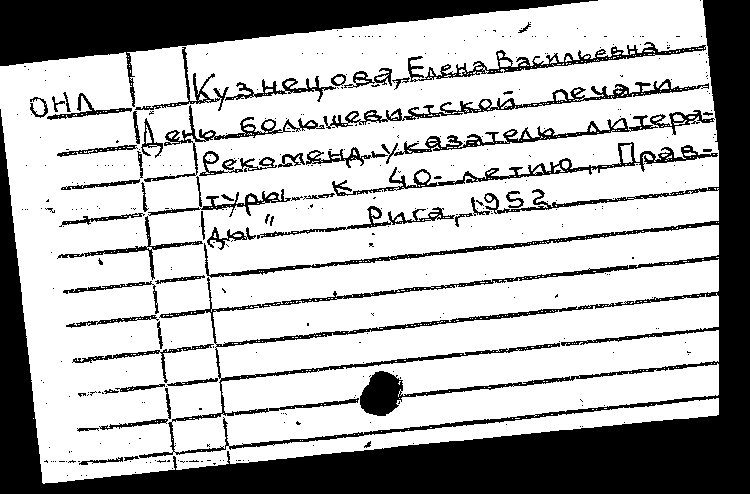 ОНЛ
Кузнецова, Елена Васильевна
День большевистской печати.
Рекоменд. указатель литера-
туры к 40-летию „Прав-
ды" Рига, 1952.